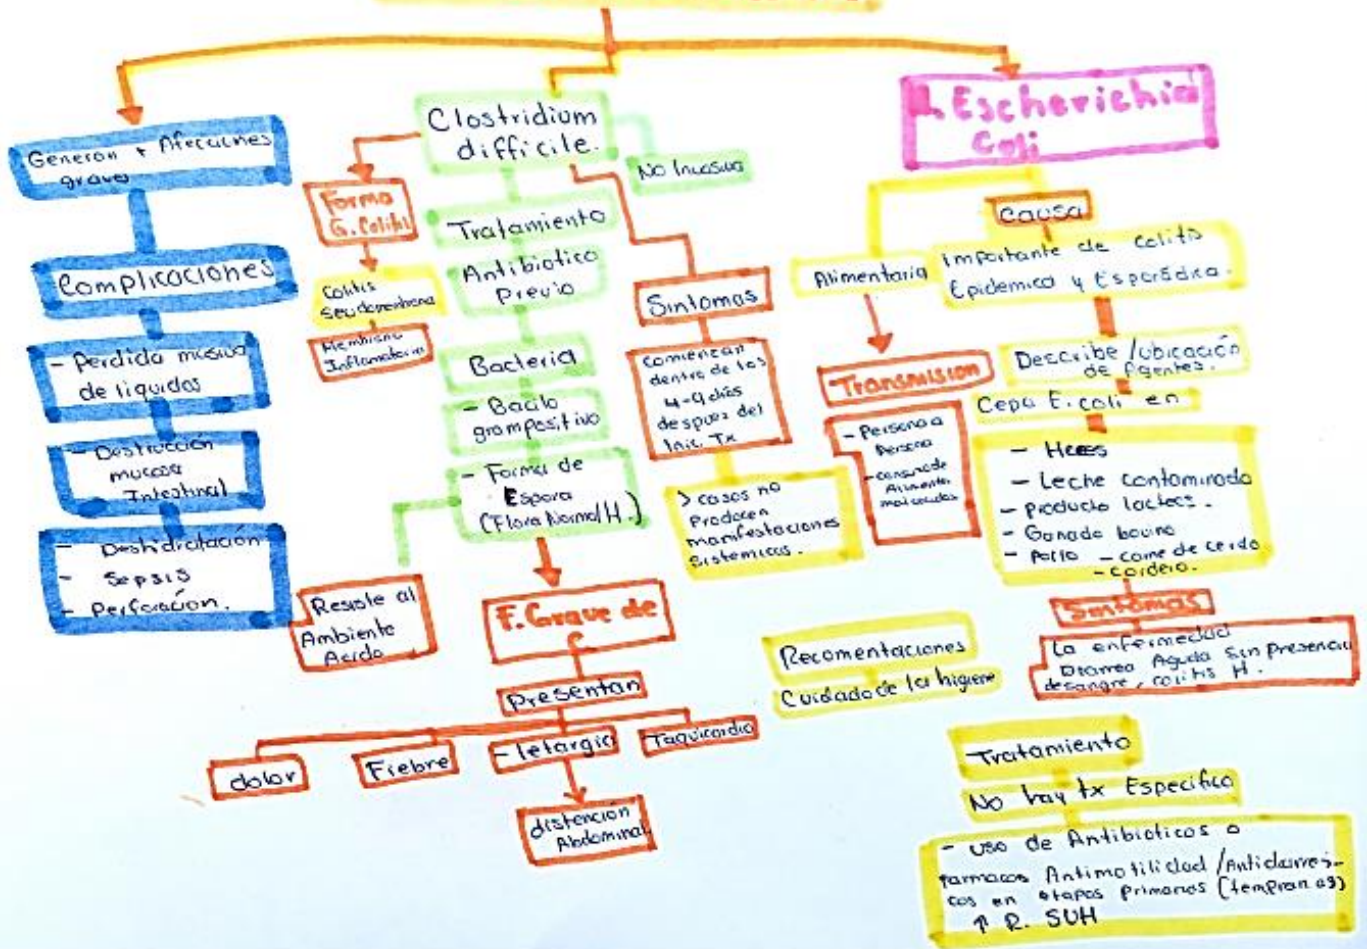 Generan + Afecciones
graves
Complicaciones
- Perdida masiva
de liquidos
- Destrucción
mucosa
Intestinal
- Deshidratación
- Sepsis
- Perforación.
Clostridium
difficile.
No Invasiva
Forma
G. Colitis
Colitis
Membrana
Inflamatoria
Tratamiento
Antibiotico
Previo
Bacteria
- Bacilo
grampositivo
- Forma de
Espora
(Flora Normal H.)
Resiste al
Ambiente
Acido
F. Grave de
C
Presentan
dolor
Fiebre
- letargia
Taquicardia
distención
Abdominal
Sintomas
comienzan
dentro de los
4-9 dias
despues del
Inic. Tx
> casos no
Producen
manifestaciones
sistemicas.
1. Escherichia
Coli
Causa
Importante de colitis
Epidemica y Esporádica.
Alimentaria
Transmision
- Persona a
Persona
- consumo de
Alimentos
mal cocidos
Describe /ubicación
de Agentes.
Cepa E. coli en
- Heces
- Leche contaminada
- producto lacteos.
- Ganado bovino
- Pollo - carne de cerdo
- cordero.
Sintomas
La enfermedad
Diarrea Aguda sin presencia
de sangre, colitis H.
Recomentaciones
Cuidado de la higiene
Tratamiento
No hay tx Especifico
- uso de Antibioticos o
farmacos Antimotilidad /Antidiarrei-
cos en etapas primarias (tempranas)
↑ R. SUH